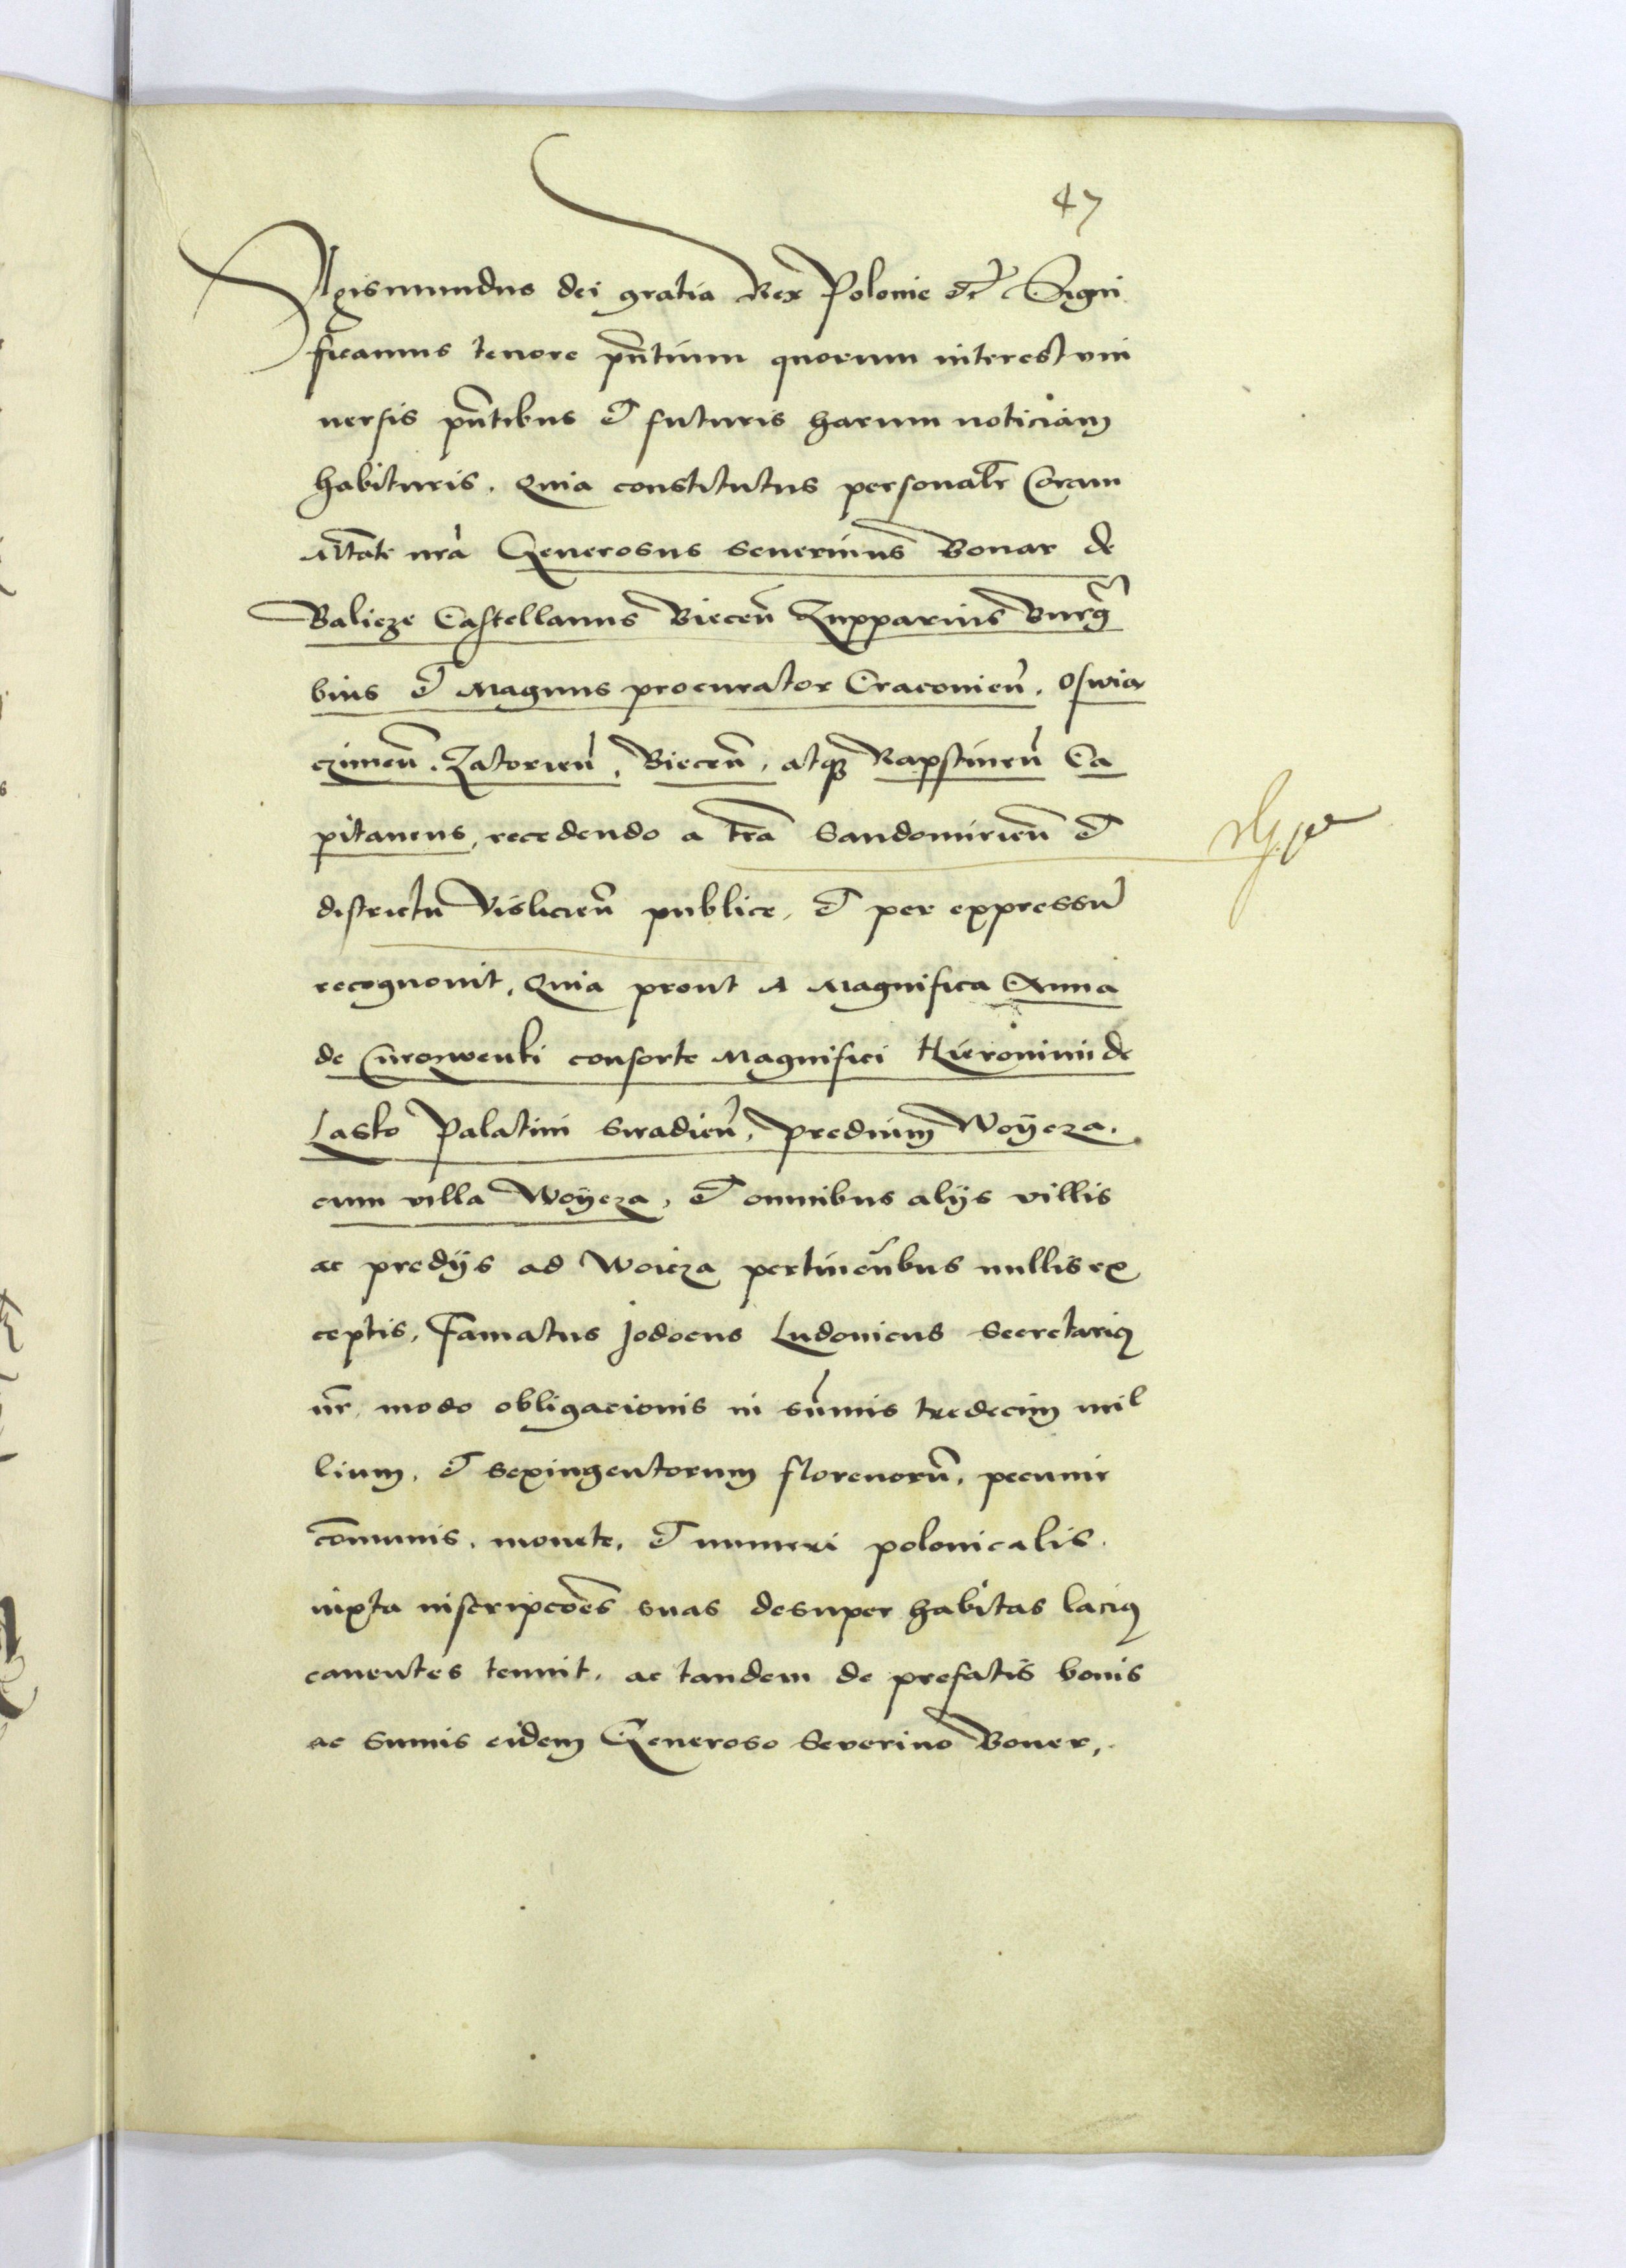 47
Sigismundus dei gratia Rex Polonie etc̄ Signi
ficamus tenore pn̄tium quorum interest vni
uersis pn̄tibus et futuris harum noticiam
habituris. Quia constitutus personalr̄ Coram
Mtāte nrā Generosus Seuerinus Bonar de
Balicze Castellanus Biecen̄ Zupparius Burgr̄a
bius et Magnus procurator Cracouien̄. Oswia
czimen̄. Zatorien̄, Biecen̄, atqꝫ Rapstinen̄ Ca
pitaneus, recedendo a trā Sandomirien̄ et
districtu Vislicien̄ publice, et per expressū
recognouit, Quia prout A Magnifica Anna
de Curozwenki consorte Magnifici Hieronimi de
Lasko Palatini Siradien̄, predium Woÿcza.
cum villa Woÿcza, et omnibus alÿs villis
ac predÿs ad Woicza pertinen̄bus nullis ex
ceptis, Famatus Jodocus Ludouicus Secretariꝰ
nr̄ modo obligacionis in sūmis tredecim mil
lium, et sexingentorum florenorū, pecunie
cōmunis, monete, et numeri polonicalis.
iuxta inscripcōes suas desuper habitas laciꝰ
canentes tenuit, ac tandem de prefatis bonis
ac sumis eidem Generoso Severino Boner,